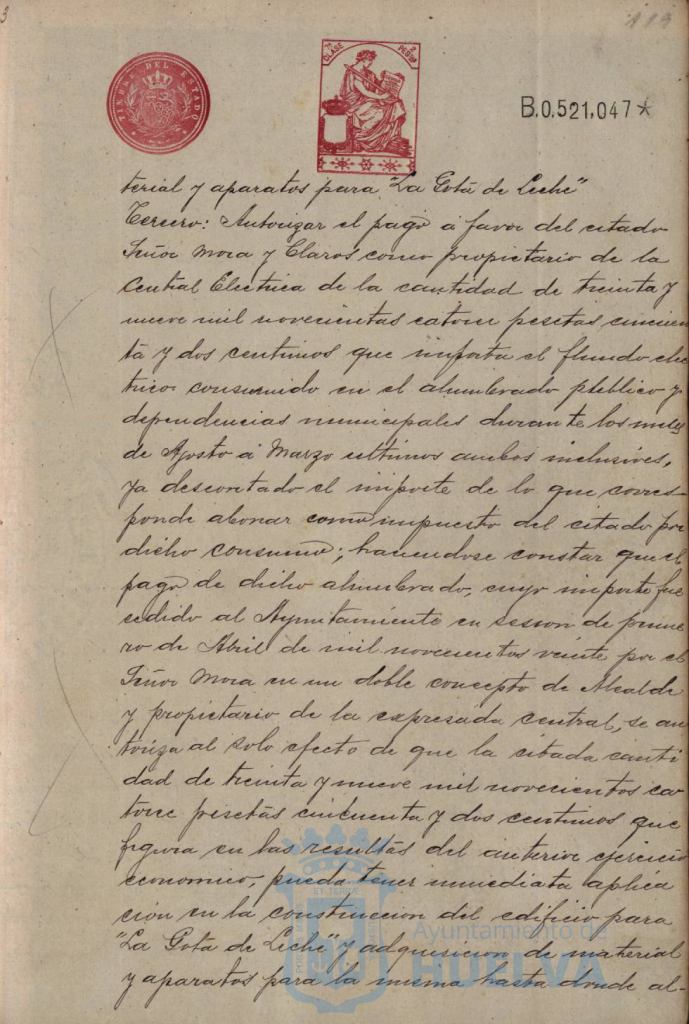 3
113
TIMBRE DEL ESTADO
7ª CLASE 2 PESETAS
B.0.521,047*
terial y aparatos para "La Gota de Leche"
Tercero: Autorizar el pago a favor del citado
Señor Mora y Claros como propietario de la
Central Electrica de la cantidad de treinta y
nueve mil novecientas catorce pesetas cincuen
ta y dos centimos que importa el fluido elec
trico consumido en el alumbrado publico y
dependencias municipales durante los meses
de Agosto a Marzo ultimos ambos inclusives,
ya descontado el importe de lo que corres
ponde abonar como impuesto del citado por
dicho consumo; haciendose constar que el
pago de dicho alumbrado, cuyo importe fue
cedido al Ayuntamiento en sesion de prime
ro de Abril de mil novecientos veinte por el
Señor Mora en un doble concepto de Alcalde
y propietario de la expresada central, se au
toriza al solo efecto de que la citada canti
dad de treinta y nueve mil novecientos ca
torce pesetas cincuenta y dos centimos que
figura en las resultas del anterior ejercicio
economico, pueda tener inmediata aplica
cion en la construccion del edificio para
"La Gota de Leche" y adquisicion de material
y aparatos para la misma hasta donde al-
Ayuntamiento de
HUELVA